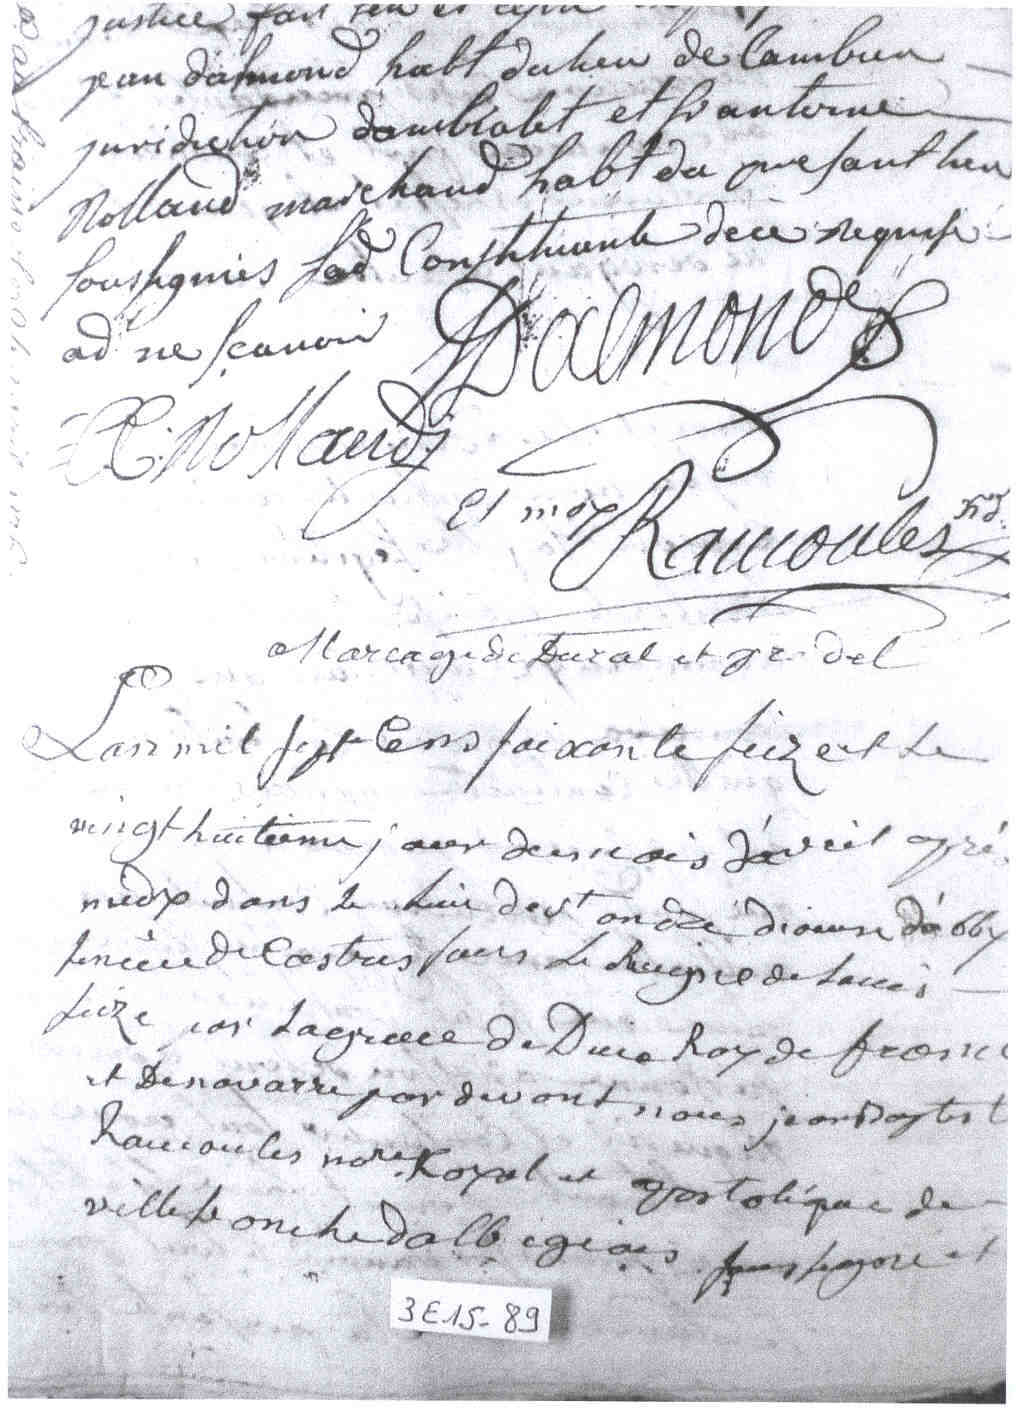 justice fait leu et
jean dalmond habt du lieu de Cambieu
juridiction damblabet et sr antoine
Rolland marchand habt du presant lieu
soussignés lad Constituante de ce requise
ad ne sçavoir Dalmond
Rolland
Et moy Raucoules nre
Mariage de Dural et pradel
Lan mil sept Cens soixante seize et le
vingt huitieme jour du mois davril après
midy dans le lieu de st andré dioceze dalby
senéce. de Castres sous le Reigne de Louis
seize par la grace de Dieu Roy de france
et De navarre par devant nous jean Baptiste
Raucoules nore Royal et apostolique de
villefranche dalbigeois soussigné et
3E15-89